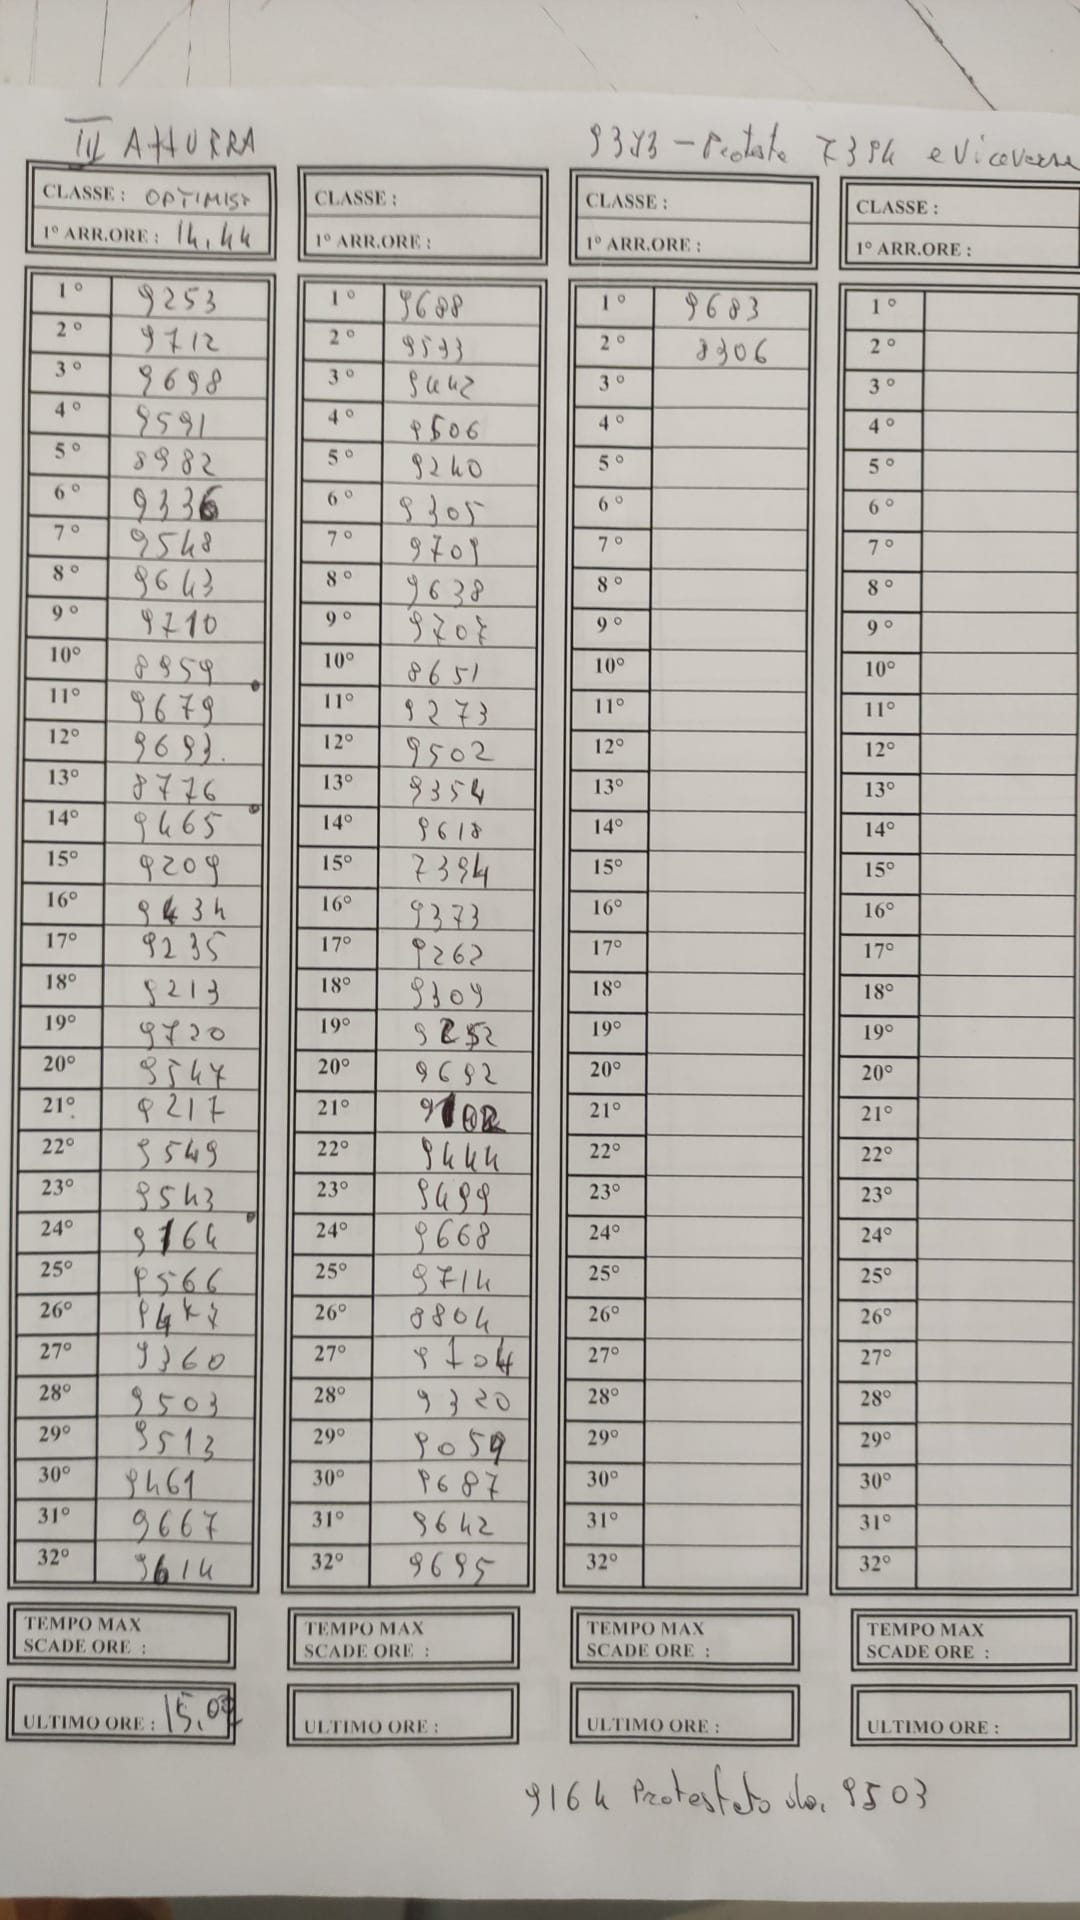 III AZZURRA
9373 - Protesta 7394 e Viceversa
CLASSE : OPTIMIST
1° ARR.ORE : 14,44
1° 9253
2° 9712
3° 9698
4° 9591
5° 8982
6° 9336
7° 9548
8° 9643
9° 9710
10° 8959
11° 9679
12° 9693.
13° 8776
14° 9465
15° 9209
16° 9434
17° 9235
18° 9213
19° 9720
20° 9547
21° 9217
22° 9549
23° 9543
24° 9164
25° 9566
26° 9477
27° 9360
28° 9503
29° 9513
30° 9461
31° 9667
32° 9614
TEMPO MAX
SCADE ORE :
ULTIMO ORE : 15,07
CLASSE :
1° ARR.ORE :
1° 9688
2° 9533
3° 9442
4° 9506
5° 9240
6° 9305
7° 9709
8° 9638
9° 9707
10° 8651
11° 9273
12° 9502
13° 9354
14° 9618
15° 7394
16° 9373
17° 9262
18° 9309
19° 9252
20° 9692
21°
22° 9444
23° 9499
24° 9668
25° 9714
26° 8804
27° 9704
28° 9320
29° 9059
30° 9687
31° 9642
32° 9695
TEMPO MAX
SCADE ORE :
ULTIMO ORE :
CLASSE :
1° ARR.ORE :
1° 9683
2° 8306
3°
4°
5°
6°
7°
8°
9°
10°
11°
12°
13°
14°
15°
16°
17°
18°
19°
20°
21°
22°
23°
24°
25°
26°
27°
28°
29°
30°
31°
32°
TEMPO MAX
SCADE ORE :
ULTIMO ORE :
CLASSE :
1° ARR.ORE :
1°
2°
3°
4°
5°
6°
7°
8°
9°
10°
11°
12°
13°
14°
15°
16°
17°
18°
19°
20°
21°
22°
23°
24°
25°
26°
27°
28°
29°
30°
31°
32°
TEMPO MAX
SCADE ORE :
ULTIMO ORE :
9164 Protestato da 9503